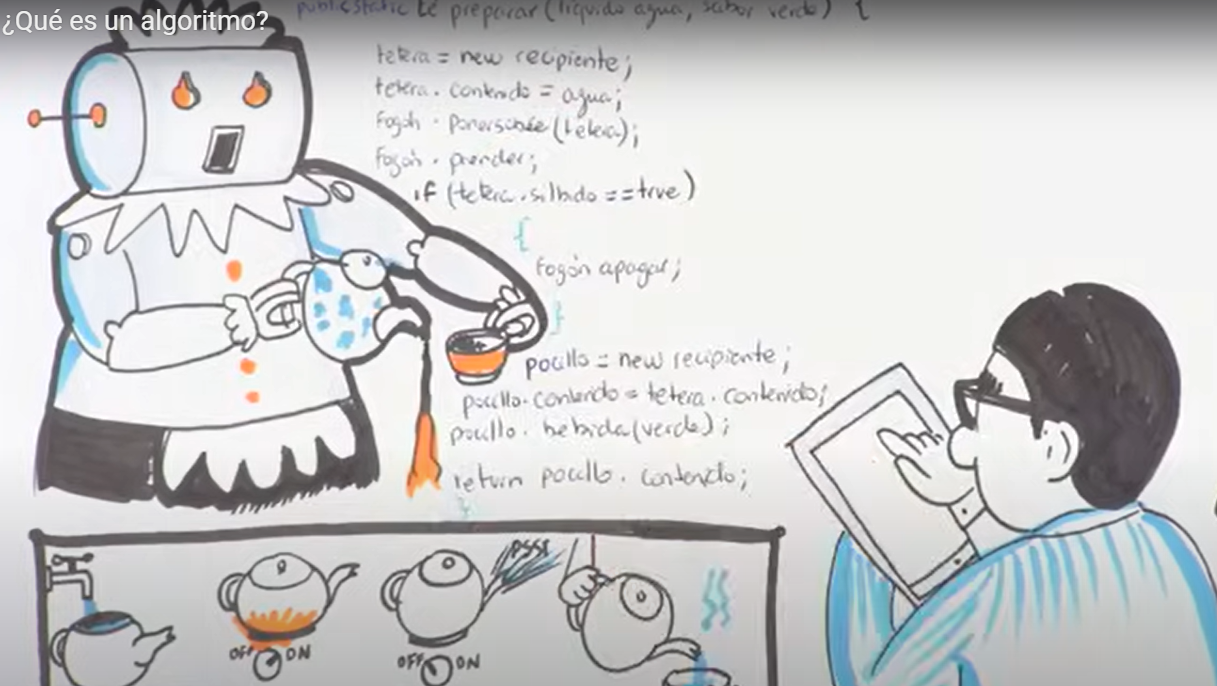 ¿Qué es un algoritmo?
public static té preparar (líquido agua, sabor verde) {
tetera = new recipiente;
tetera. contenido = agua;
Fogón. ponersobre (tetera);
Fogón. prender;
if (tetera.silbido == true)
{
Fogón apagar;
}
pocillo = new recipiente;
pocillo. contenido = tetera. contenido;
pocillo. bebida (verde);
return pocillo. contenido;
}
PSSS
OFF ON
OFF ON